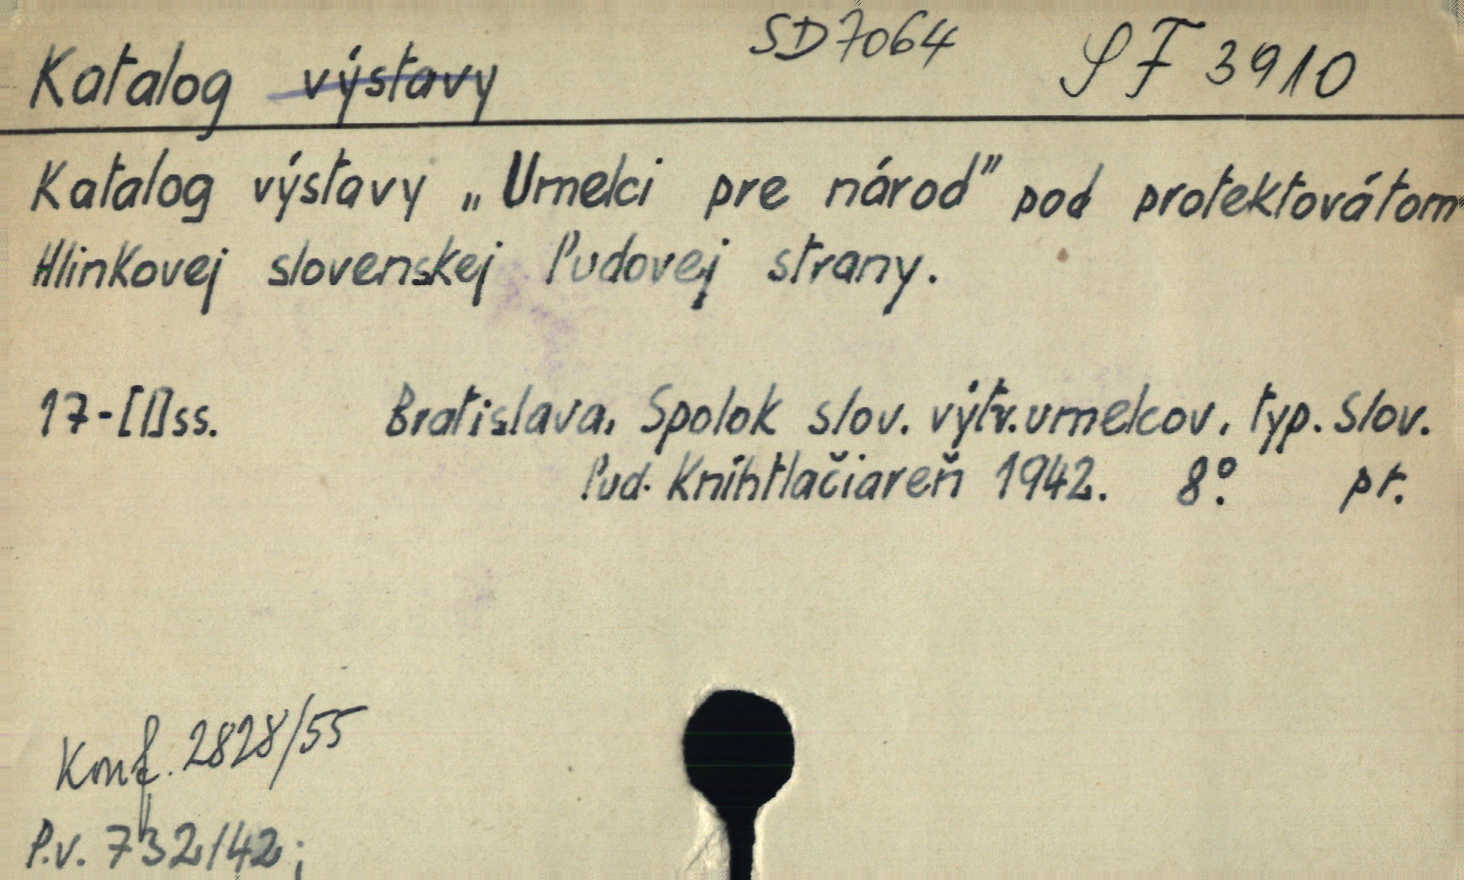 SD 7064 SF 3910
Katalog výstavy
Katalog výstavy „Umelci pre národ" pod protektovátom
Hlinkovej slovenskej ľudovej strany.
17-[1]ss. Bratislava, Spolok slov. výtv. umelcov, typ. Slov.
ľud. Kníhtlačiareň 1942. 8°. pr.
Konf. 2828/55
P.v. 732/42;